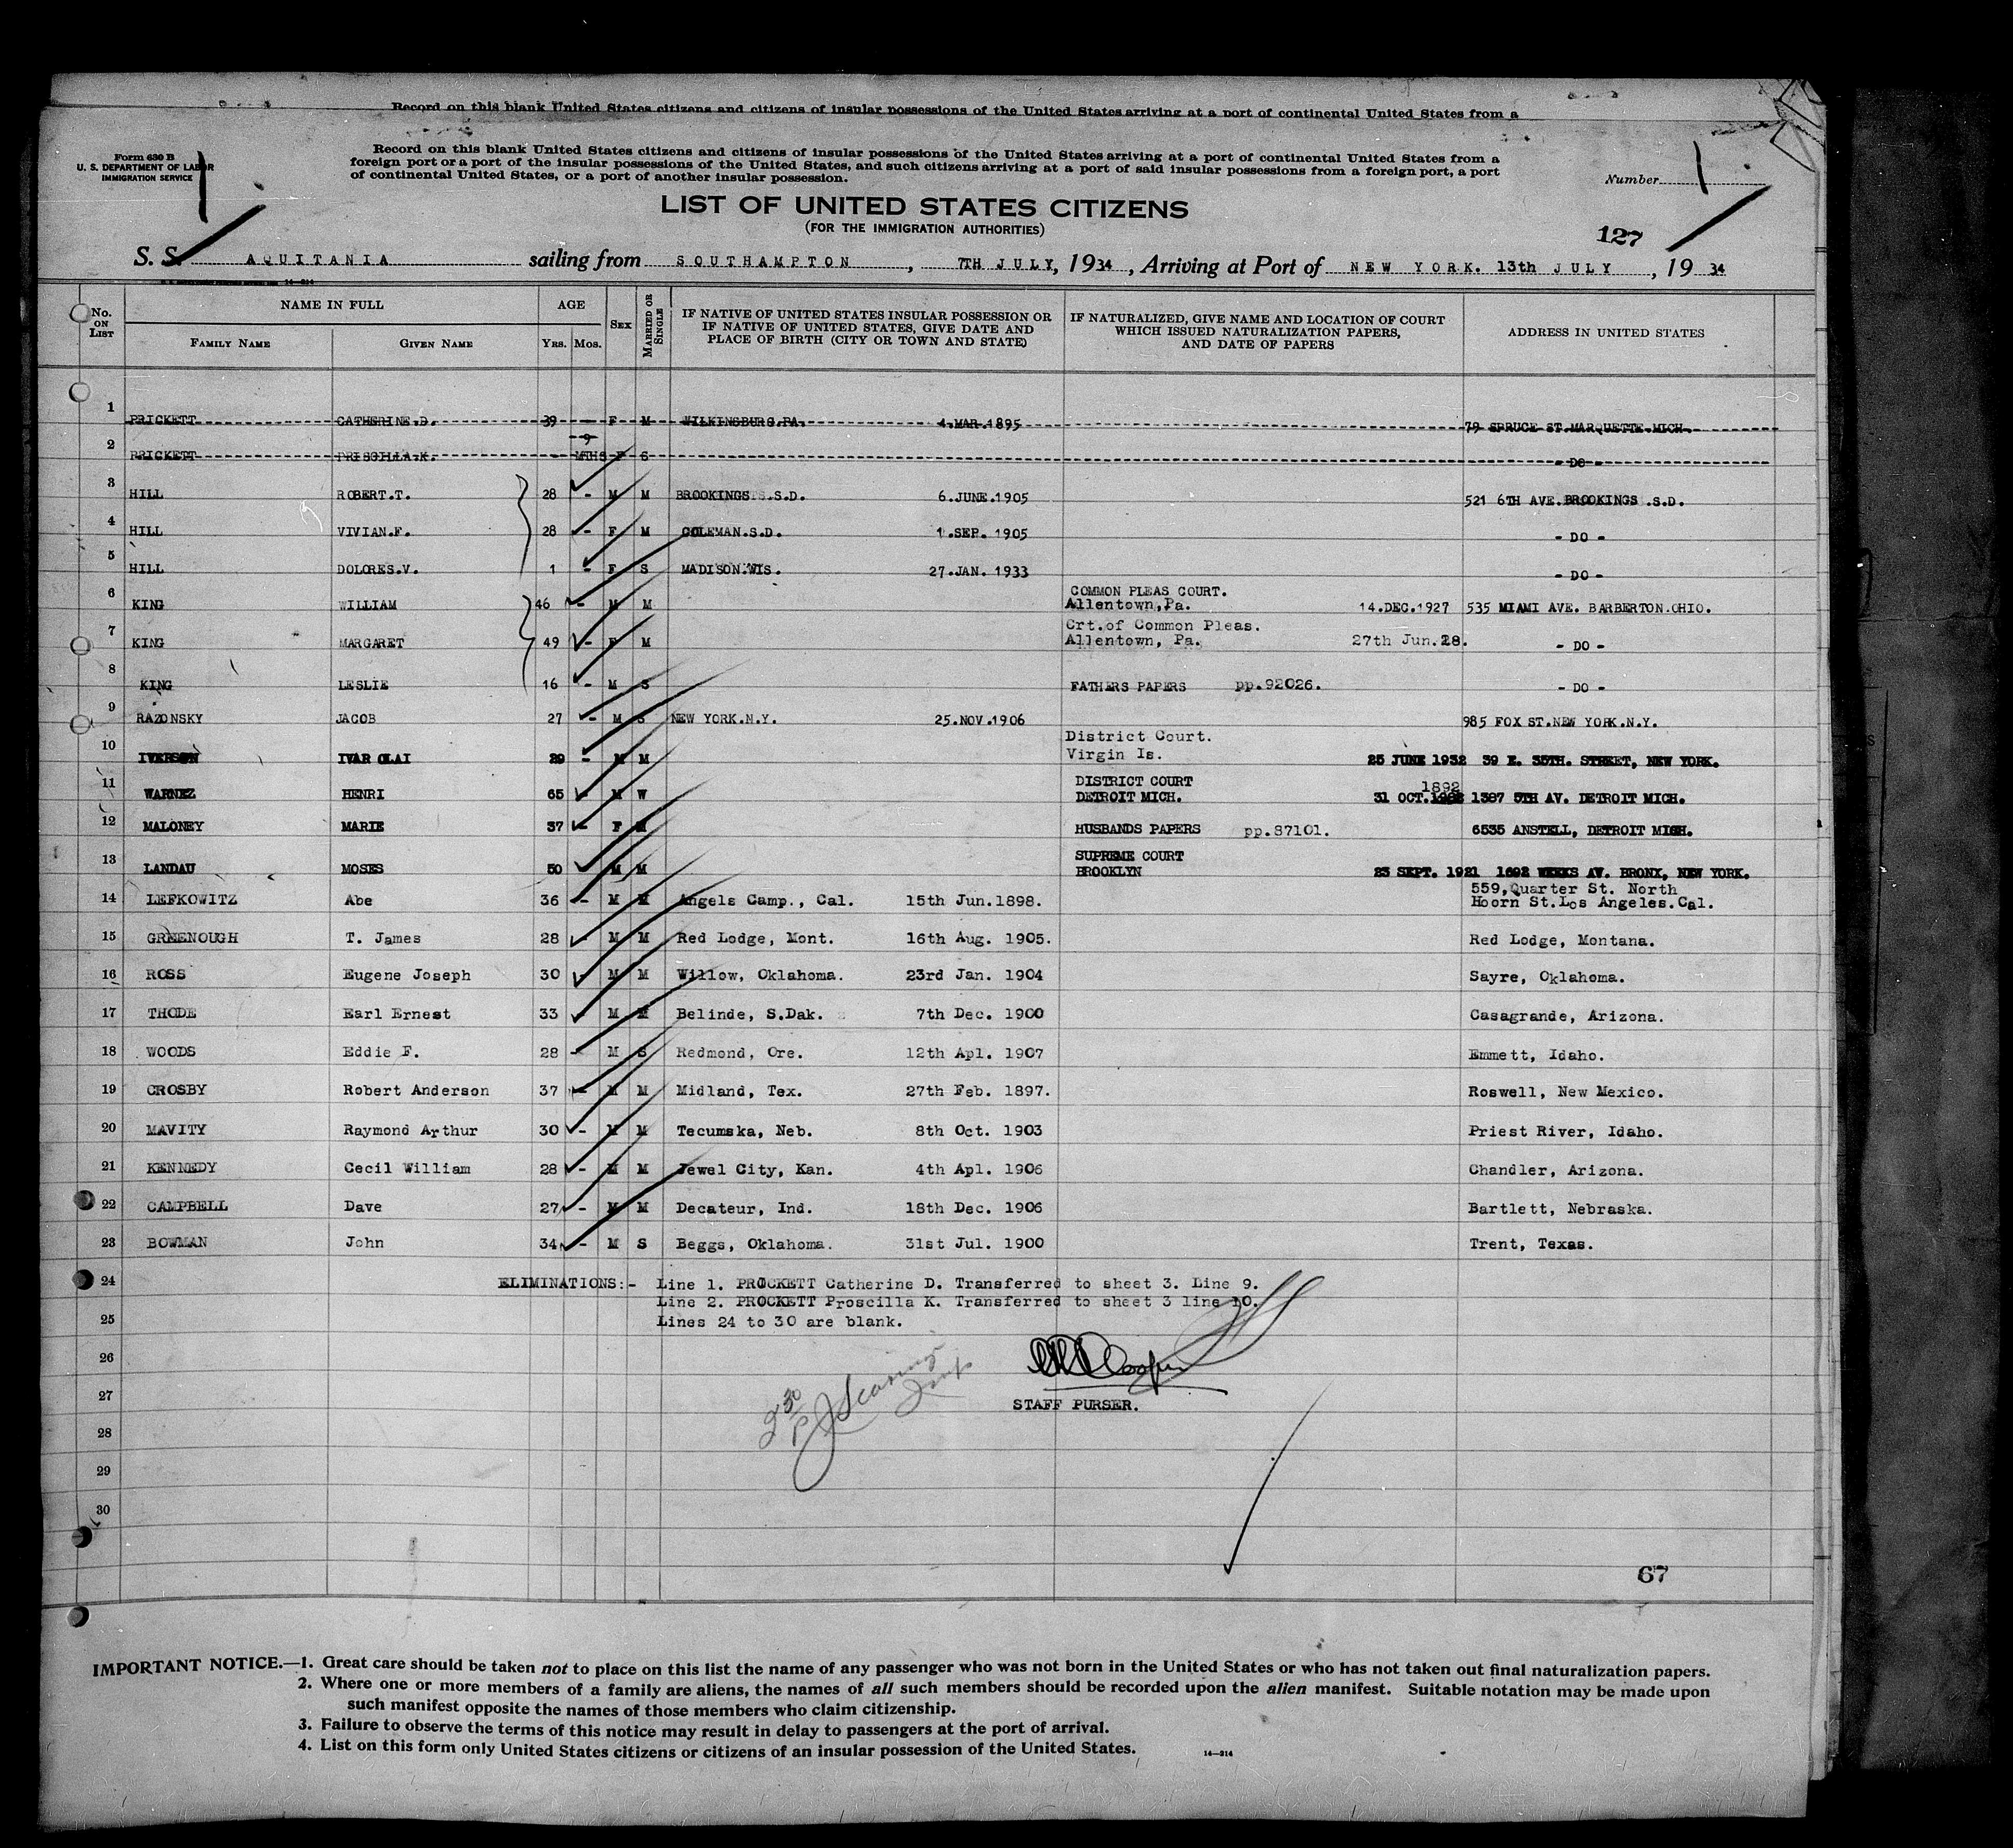 Record on this blank United States citizens and citizens of insular possessions of the United States arriving at a port of continental United States from a
Form 630 B
U. S. DEPARTMENT OF LABOR
IMMIGRATION SERVICE
1
Record on this blank United States citizens and citizens of insular possessions of the United States arriving at a port of continental United States from a
foreign port or a port of the insular possessions of the United States, and such citizens arriving at a port of said insular possessions from a foreign port, a port
of continental United States, or a port of another insular possession.
Number 1
LIST OF UNITED STATES CITIZENS
(FOR THE IMMIGRATION AUTHORITIES)
127
S. S. AQUITANIA sailing from SOUTHAMPTON, 7TH JULY, 1934, Arriving at Port of NEW YORK. 13th JULY, 19 34
No. ON LIST NAME IN FULL AGE SEX MARRIED OR SINGLE IF NATIVE OF UNITED STATES INSULAR POSSESSION OR IF NATIVE OF UNITED STATES, GIVE DATE AND PLACE OF BIRTH (CITY OR TOWN AND STATE) IF NATURALIZED, GIVE NAME AND LOCATION OF COURT WHICH ISSUED NATURALIZATION PAPERS, AND DATE OF PAPERS ADDRESS IN UNITED STATES
FAMILY NAME GIVEN NAME YRS. MOS.
1 PRICKETT CATHERINE.D. 39 - F M WILKINSBURG.PA. 4.MAR.1895 79 SPRUCE ST.MARQUETTE.MICH.
2 PRICKETT PRISCILLA.K. - 9 MTHS F S - DO -
3 HILL ROBERT.T. 28 - M M BROOKINGS.S.D. 6.JUNE.1905 521 6TH AVE.BROOKINGS.S.D.
4 HILL VIVIAN.F. 28 - F M COLEMAN.S.D. 1.SEP. 1905 - DO -
5 HILL DOLORES.V. 1 - F S MADISON.WIS. 27.JAN. 1933 - DO -
6 KING WILLIAM 46 - M M COMMON PLEAS COURT. Allentown,Pa. 14.DEC.1927 535 MIAMI AVE. BARBERTON.OHIO.
7 KING MARGARET 49 - F M Crt.of Common Pleas. Allentown, Pa. 27th Jun.28. - DO -
8 KING LESLIE 16 - M S FATHERS PAPERS pp.92026. - DO -
9 RAZONSKY JACOB 27 - M S NEW YORK.N.Y. 25.NOV.1906 985 FOX ST.NEW YORK.N.Y.
10 IVERSON IVAR OLAI 29 - M M District Court. Virgin Is. 25 JUNE 1932 39 E. 35TH. STREET, NEW YORK.
11 WARNEZ HENRI 65 - M W DISTRICT COURT DETROIT MICH. 31 OCT. 1892 1387 5TH AV. DETROIT MICH.
12 MALONEY MARIE 37 - F M HUSBANDS PAPERS pp.87101. 6535 ANSTELL, DETROIT MICH.
13 LANDAU MOSES 50 M M SUPREME COURT BROOKLYN 23 SEPT. 1921 1692 WEEKS AV. BRONX, NEW YORK.
14 LEFKOWITZ Abe 36 - M M Angels Camp., Cal. 15th Jun.1898. 559,Quarter St. North Hoorn St.Los Angeles.Cal.
15 GREENOUGH T. James 28 - M M Red Lodge, Mont. 16th Aug. 1905. Red Lodge, Montana.
16 ROSS Eugene Joseph 30 - M M Willow, Oklahoma. 23rd Jan. 1904 Sayre, Oklahoma.
17 THODE Earl Ernest 33 - M M Belinde, S.Dak. 7th Dec. 1900 Casagrande, Arizona.
18 WOODS Eddie F. 28 - M S Redmond, Ore. 12th Apl. 1907 Emmett, Idaho.
19 CROSBY Robert Anderson 37 - M M Midland, Tex. 27th Feb. 1897. Roswell, New Mexico.
20 MAVITY Raymond Arthur 30 - M M Tecumska, Neb. 8th Oct. 1903 Priest River, Idaho.
21 KENNEDY Cecil William 28 - M M Jewel City, Kan. 4th Apl. 1906 Chandler, Arizona.
22 CAMPBELL Dave 27 - M M Decateur, Ind. 18th Dec. 1906 Bartlett, Nebraska.
23 BOWMAN John 34 - M S Beggs, Oklahoma. 31st Jul. 1900 Trent, Texas.
24 ELIMINATIONS:- Line 1. PROCKETT Catherine D. Transferred to sheet 3. Line 9.
Line 2. PROCKETT Proscilla K. Transferred to sheet 3 line 10.
25 Lines 24 to 30 are blank.
26
27 STAFF PURSER.
28
29
30
67
IMPORTANT NOTICE.—1. Great care should be taken not to place on this list the name of any passenger who was not born in the United States or who has not taken out final naturalization papers.
2. Where one or more members of a family are aliens, the names of all such members should be recorded upon the alien manifest. Suitable notation may be made upon
such manifest opposite the names of those members who claim citizenship.
3. Failure to observe the terms of this notice may result in delay to passengers at the port of arrival.
4. List on this form only United States citizens or citizens of an insular possession of the United States.
14—214